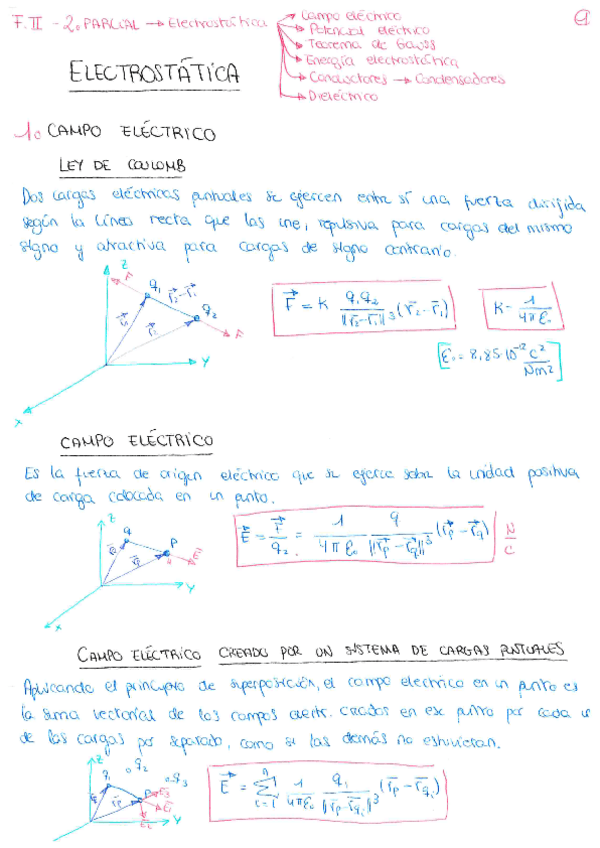 F.II - 2º PARCIAL → Electrostática
→ Campo eléctrico
→ Potencial eléctrico
→ Teorema de Gauss
→ Energía electrostática
→ Conductores → Condensadores
→ Dieléctrico
1
ELECTROSTÁTICA
1. CAMPO ELÉCTRICO
LEY DE COULOMB
Dos cargas eléctricas puntuales se ejercen entre sí una fuerza dirigida
según la línea recta que las une, repulsiva para cargas del mismo
signo y atractiva para cargas de signo contrario.
Z F q₁ r₂-r₁ q₂ r₁ r₂ F Y X
F = K q₁q₂ / ||r₂-r₁||³ (r₂-r₁)
K = 1 / 4πε₀
[ε₀ = 8,85·10⁻¹² C² / Nm²]
CAMPO ELÉCTRICO
Es la fuerza de origen eléctrico que se ejerce sobre la unidad positiva
de carga colocada en un punto.
Z q P E Y X
E = F / q₂ = 1 / 4πε₀ q / ||rp - rq||³ (rp - rq) N / C
CAMPO ELÉCTRICO CREADO POR UN SISTEMA DE CARGAS PUNTUALES
Aplicando el principio de superposición, el campo electrico en un punto es
la suma vectorial de los campos electr. creados en ese punto por cada u
de las cargas por separado, como si las demás no estuvieran.
Z q₁ q₂ q₃ P E₃ E₁ E₂ Y X
E = Σ n i=1 1 / 4πε₀ qi / ||rp - rqi||³ (rp - rqi)